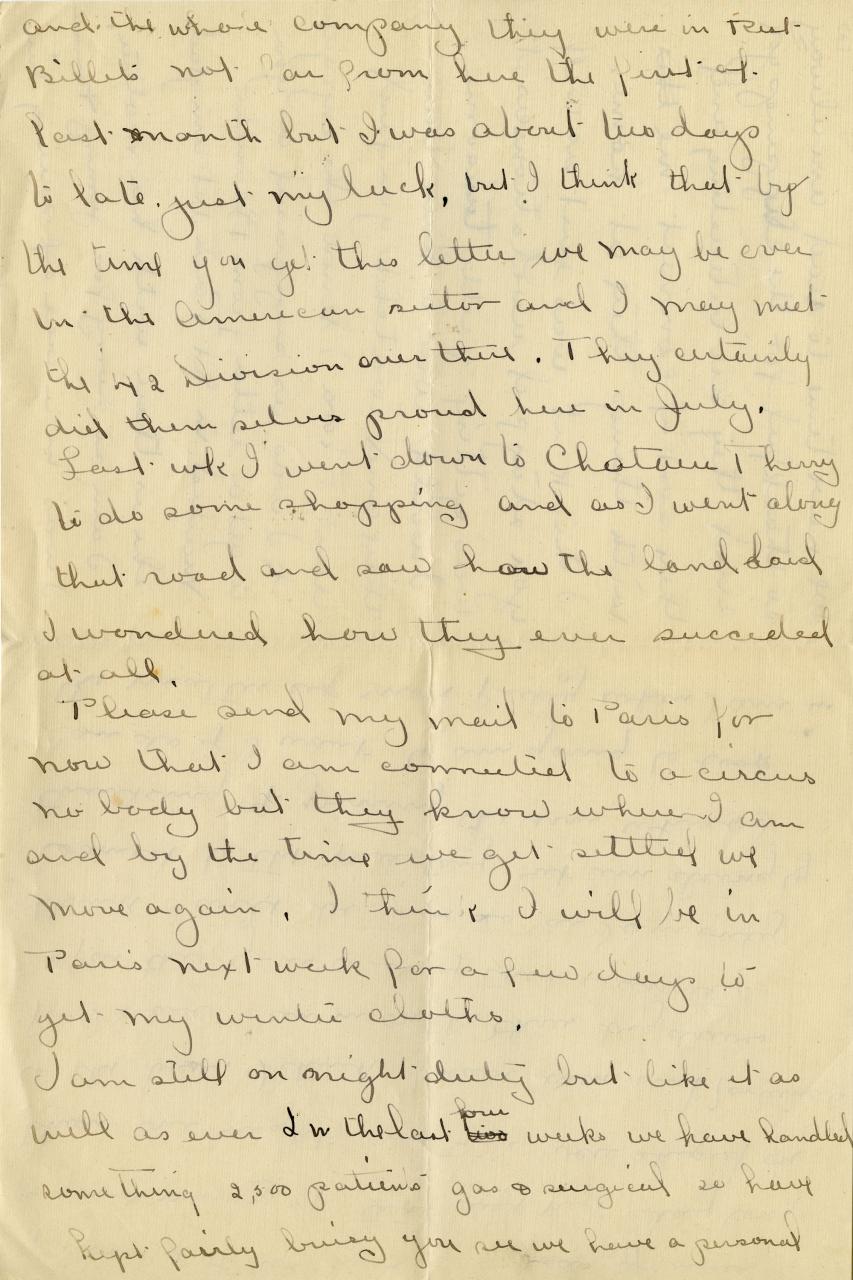 and the whole company they were in Rest
Billets not far from here the first of
last month but I was about two days
to late. just my luck, but I think that by
the time you get this letter we may be over
in the American sector and I may meet
the 42 Division over there. They certainly
did them selves proud here in July.
Last wk I went down to Chataeu Thierry
to do some shopping and as I went along
that road and saw how the land laid
I wondered how they ever succeded
at all.
Please send my mail to Paris for
now that I am connected to a circus
no body but they know where I am
and by the time we get settled we
move again. I think I will be in
Paris next week for a few days to
get my winter cloths.
I am still on night duty but like it as
well as ever In the last two four weeks we have handled
something 2,500 patients gas & surgical so have
kept fairly buisy you see we have a personal